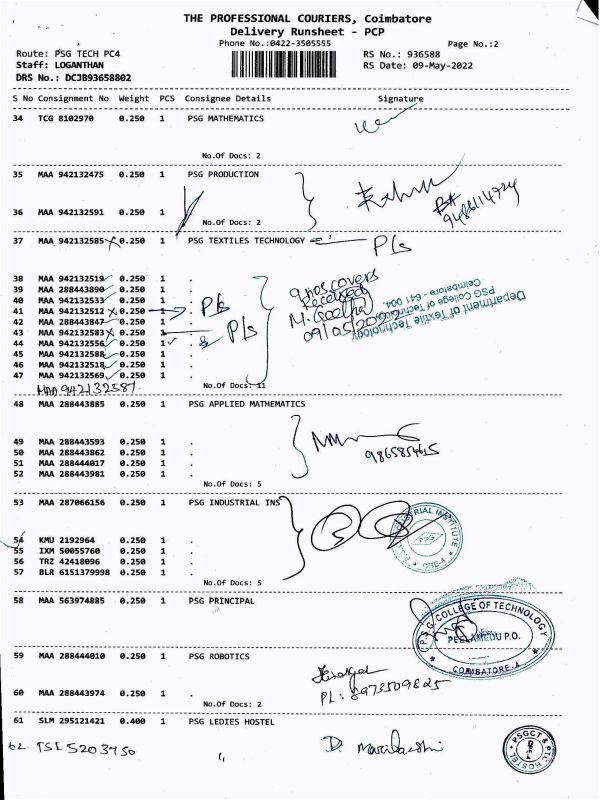 THE PROFESSIONAL COURIERS, Coimbatore
Delivery Runsheet - PCP
Phone No.:0422-3505555
Page No.:2
Route: PSG TECH PC4
RS No.: 936588
Staff: LOGANTHAN
RS Date: 09-May-2022
DRS No.: DCJB93658802
S No Consignment No Weight PCS Consignee Details Signature
34 TCG 8102970 0.250 1 PSG MATHEMATICS
No.Of Docs: 2
35 MAA 942132475 0.250 1 PSG PRODUCTION
36 MAA 942132591 0.250 1 .
No.Of Docs: 2
37 MAA 942132585 0.250 1 PSG TEXTILES TECHNOLOGY
P/s
38 MAA 942132519 0.250 1 .
39 MAA 288443890 0.250 1 .
40 MAA 942132533 0.250 1 .
41 MAA 942132512 0.250 1 . P/s
42 MAA 288443847 0.250 1 .
43 MAA 942132583 0.250 1 . P/s
44 MAA 942132556 0.250 1 .
45 MAA 942132588 0.250 1 .
46 MAA 942132518 0.250 1 .
47 MAA 942132569 0.250 1 .
9 nos covers
Received
M. Geetha
Department of Textile Technology
PSG College of Technology
Coimbatore - 641 004.
No.Of Docs: 11
MAA 942132587
48 MAA 288443885 0.250 1 PSG APPLIED MATHEMATICS
49 MAA 288443593 0.250 1 .
50 MAA 288443862 0.250 1 .
51 MAA 288444017 0.250 1 .
52 MAA 288443981 0.250 1 .
No.Of Docs: 5
53 MAA 287066156 0.250 1 PSG INDUSTRIAL INS
54 KMU 2192964 0.250 1 .
55 IXM 50055760 0.250 1 .
56 TRZ 42418096 0.250 1 .
57 BLR 6151379998 0.250 1 .
No.Of Docs: 5
58 MAA 563974885 0.250 1 PSG PRINCIPAL
PSG COLLEGE OF TECHNOLOGY
PEELAMEDU P.O.
COIMBATORE-4
59 MAA 288444010 0.250 1 PSG ROBOTICS
60 MAA 288443974 0.250 1 .
No.Of Docs: 2
PL: 8973509825
61 SLM 295121421 0.400 1 PSG LEDIES HOSTEL
62 TSI 5203750
PSGCT & PTC HOSTEL